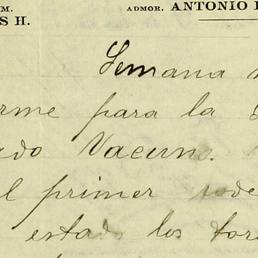 M. ADMOR. ANTONIO
S H.
Semana
rme para la
ado Vacuno.
l primer rode
estado los tor